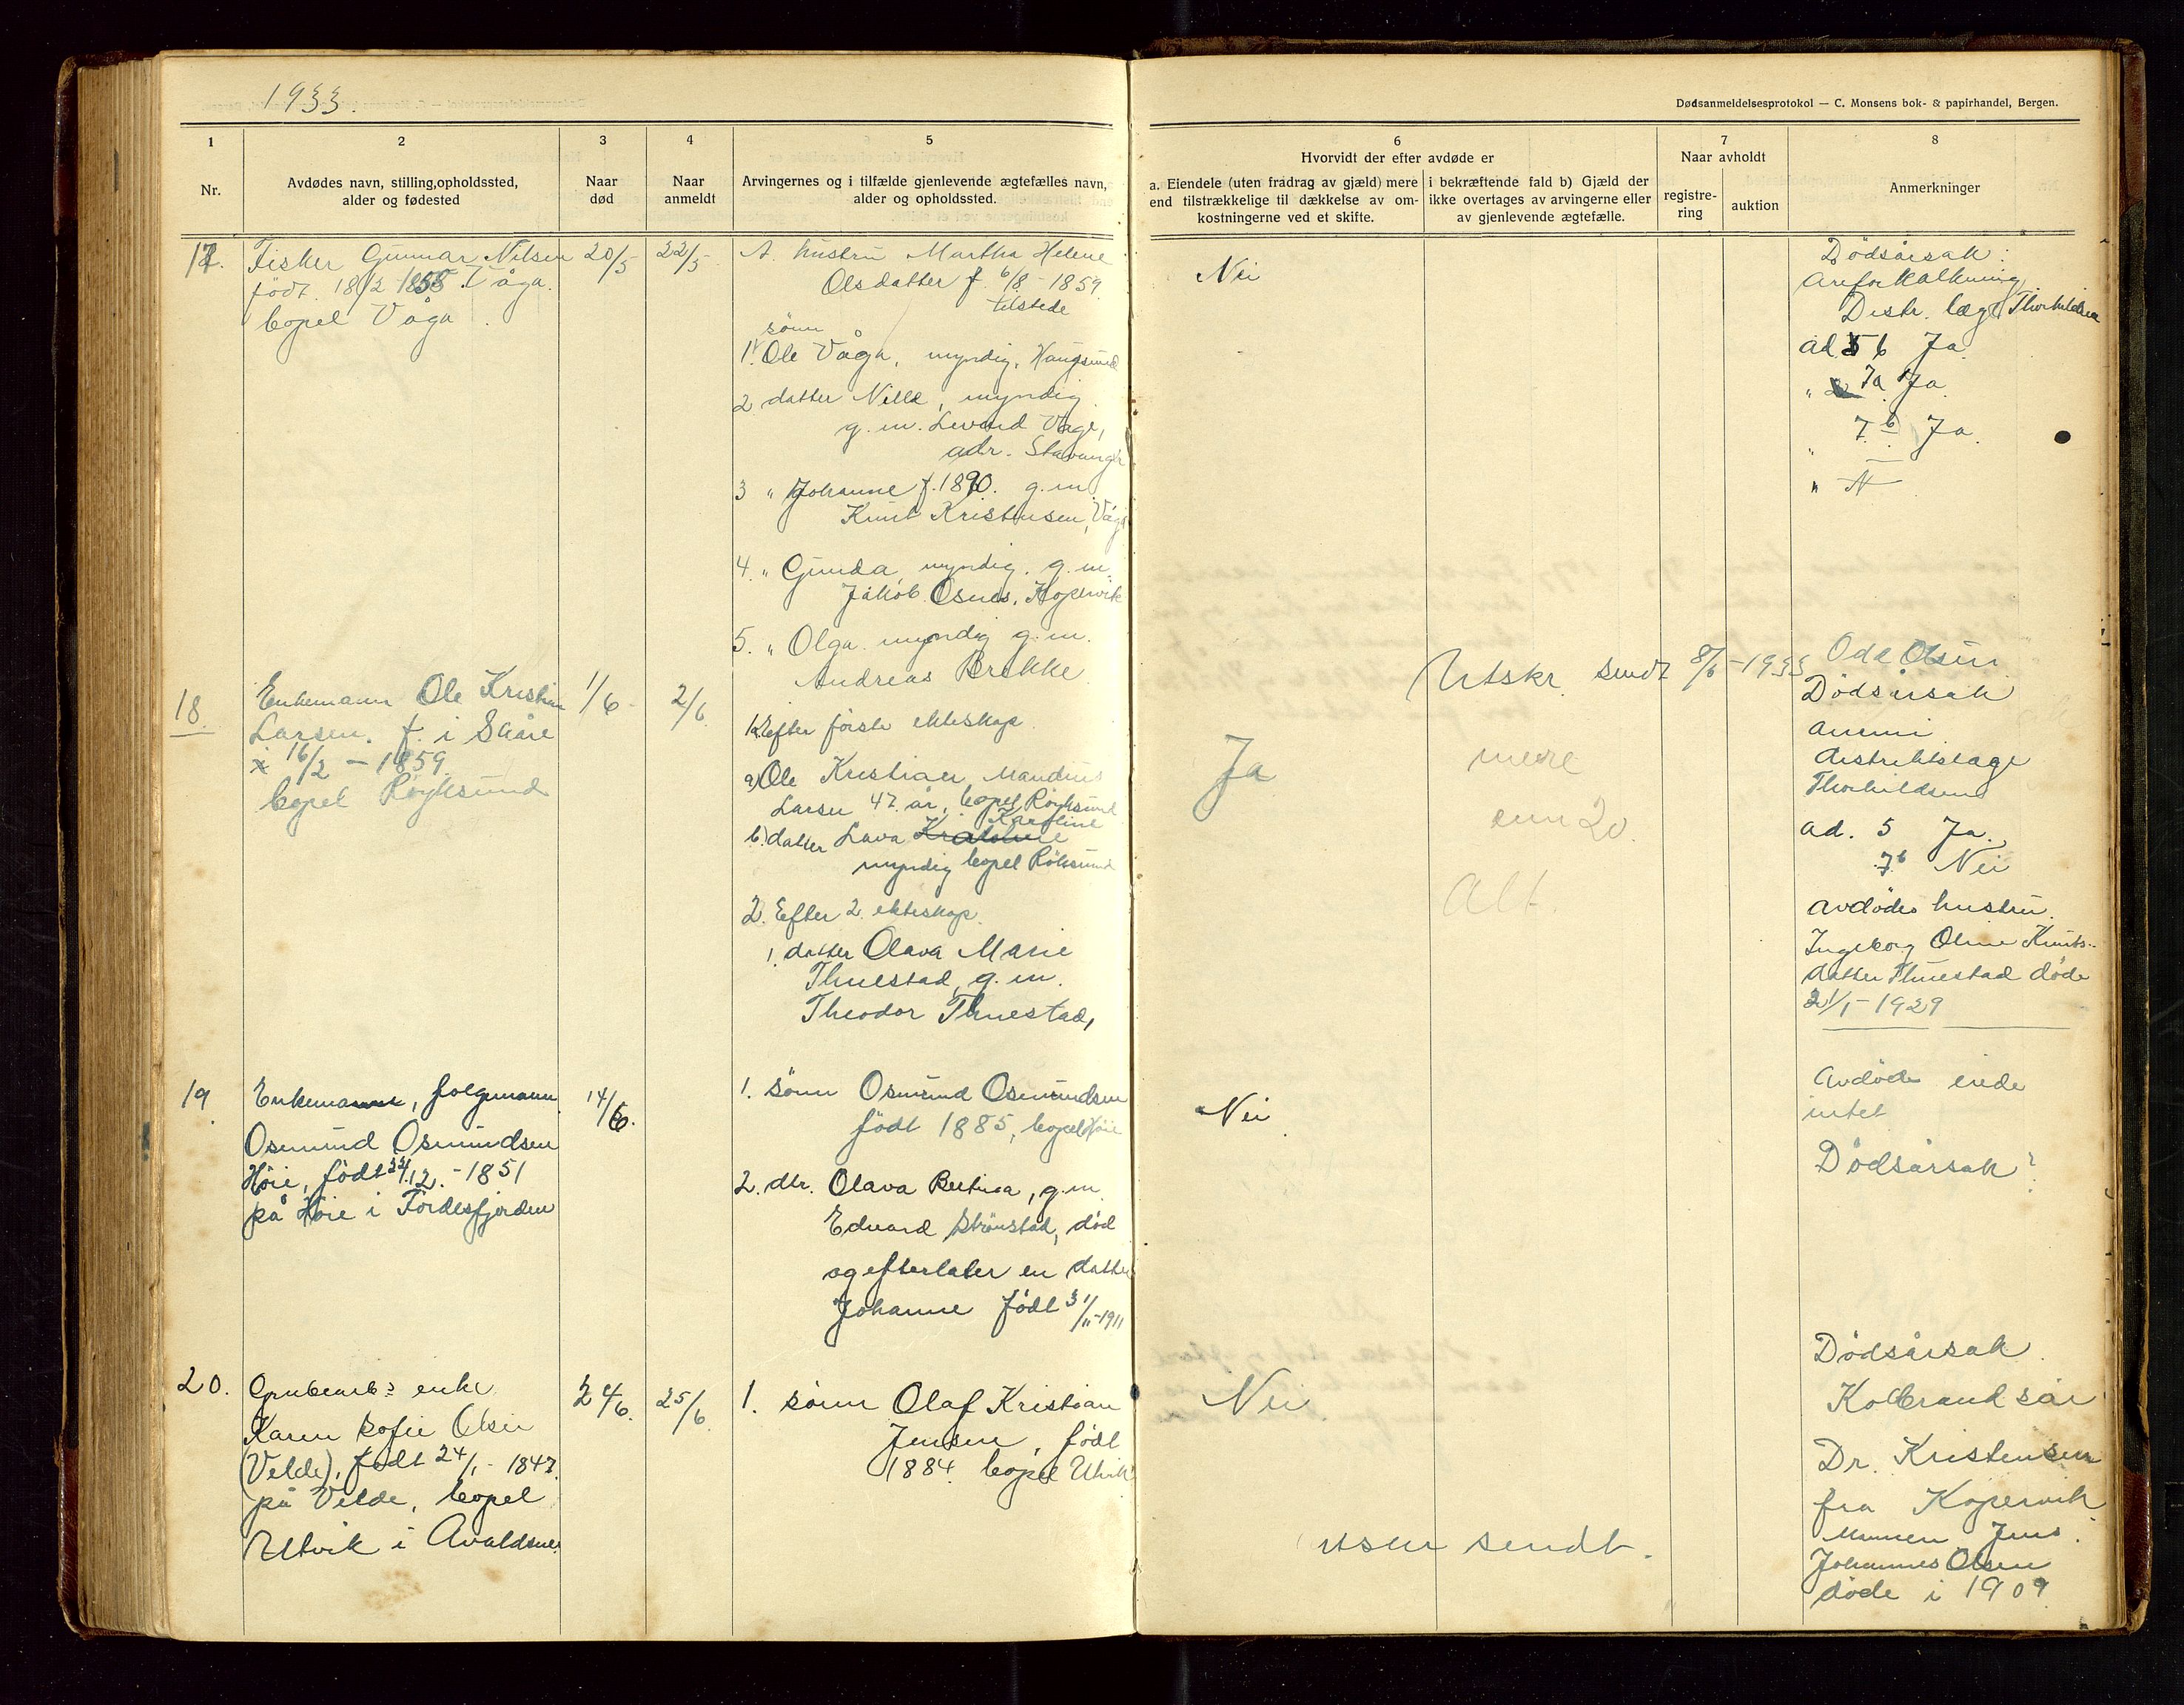 1933.
Dødsanmeldelsesprotokol — C. Monsens bok- & papirhandel, Bergen.
1
Nr.
2
Avdødes navn, stilling, opholdssted,
alder og fødested
3
Naar
død
4
Naar
anmeldt
5
Arvingernes og i tilfælde gjenlevende ægtefælles navn,
alder og opholdssted.
6
Hvorvidt der efter avdøde er
a. Eiendele (uten fradrag av gjæld) mere
end tilstrækkelige til dækkelse av om-
kostningerne ved et skifte.
i bekræftende fald b) Gjæld der
ikke overtages av arvingerne eller
av gjenlevende ægtefælle.
7
Naar avholdt
registre-
ring
auktion
8
Anmerkninger
17.
Fisker Gunnar Nilsen
født 18/2 1858 Våga.
bopel Våga
20/5
22/5
A. hustru Martha Helene
Olsdatter f. 6/8 - 1859.
tilstede
sønn
1. Ole Våga, myndig, Haugesund
2 datter Nille, myndig
g.m. Levard Våge,
adr. Stavanger
3 " Johanne f. 1890. g.m.
Knut Kristensen, Våga
4. " Gunda, myndig. g.m.
Jakob Osnes, Kopervik
5. " Olga myndig g.m.
Andreas Brekke
Nei
Dødsårsak:
Areforkalkning
Distr. læge Thorkildsen
ad 5 6 Ja.
" 7a Ja
" 7 b Ja.
" N
18.
Enkemann Ole Kristian
Larsen. f. i Skåre
16/2 - 1859.
bopel Røyksund
1/6
2/6
1. Efter første ekteskap.
a) Ole Kristian Mandrus
Larsen 47 år, bopel Røyksund
Karoline
b) datter Lava
myndig bopel Røksund
2. Efter 2. ekteskap.
1. datter Olava Marie
Thuestad, g.m.
Theodor Thuestad,
Utskr. sendt 8/6 - 1933
Ja
mere
enn 20
Alt.
Odd Olsen
Dødsårsak
anemi
distriktslæge
Thorkildsen
ad. 5 Ja.
7b Nei
Avdødes hustru
Ingeborg Oline Knuts-
datter Thuestad døde
21/1 - 1929
19.
Enkemann, folgemann
Osmund Osmundsen
Høie, født 24/12. - 1851
på Høie i Førdesfjorden
14/6.
1. sønn Osmund Osmundsen
født 1885, bopel Høie
2. dtr. Olava Bertina, g.m.
Edvard Strønstad, død
og efterlater en datter
Johanne født 31/11-1911
Nei
Avdøde eiede
intet
Dødsårsak?
20.
Grubearb.s enke
Karen Sofie Olsen
(Velde), født 24/1 - 1847.
på Velde, bopel
Utvik i Avaldsnes
24/6.
25/6.
1. sønn Olaf Kristian
Jensen, født
1884. bopel Utvik
Nei
sendt.
Dødsårsak
Kolbrand sår
Dr. Kristensen
fra Kopervik
Mannen Jens
Johannes Olsen
døde i 1909.